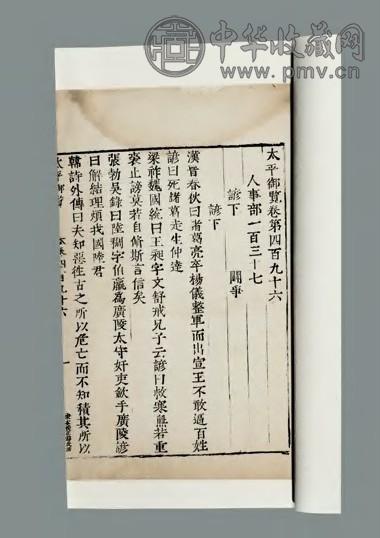 中华收藏网
www.pmv.cn
太平御覽卷第四百九十六
人事部一百三十七
諺下 鬪爭
諺下
漢晉春秋曰諸葛亮卒楊儀整軍而出宣王不敢逼百姓
諺曰死諸葛走生仲達
梁祚魏國統曰王昶字文舒戒兄子云諺曰救寒無若重
裘止謗莫若自脩斯言信矣
張勃吳錄曰陸稠字伯羸爲廣陵太守奸吏歛手廣陵諺
曰解結理煩我國陸君
韓詩外傳曰夫知惡往古之所以危亡而不知積其所以
太平御覽 四百九十六 一